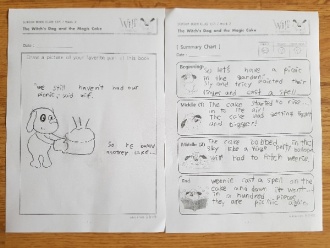 The Witch's Dog and the Magic Cake
Draw a picture of your favorite part of this book
"We still haven't had our
picnic," said Wilf.
So, he baked
another cake...
The Witch's Dog and the Magic Cake
[ Summary Chart ]
Beginning
let's have a picnic
in the garden
pointed their
finger and cast a spell.
Middle (1)
The cake started to rise
in to the air
The cake was getting bigger
and bigger!
Middle (2)
The cake bobbed in the
sky like a huge party balloon
Wilf had to fetch Weenie.
End
Weenie cast a spell on the
cake and down it went
in a hundred pieces
picnic again.